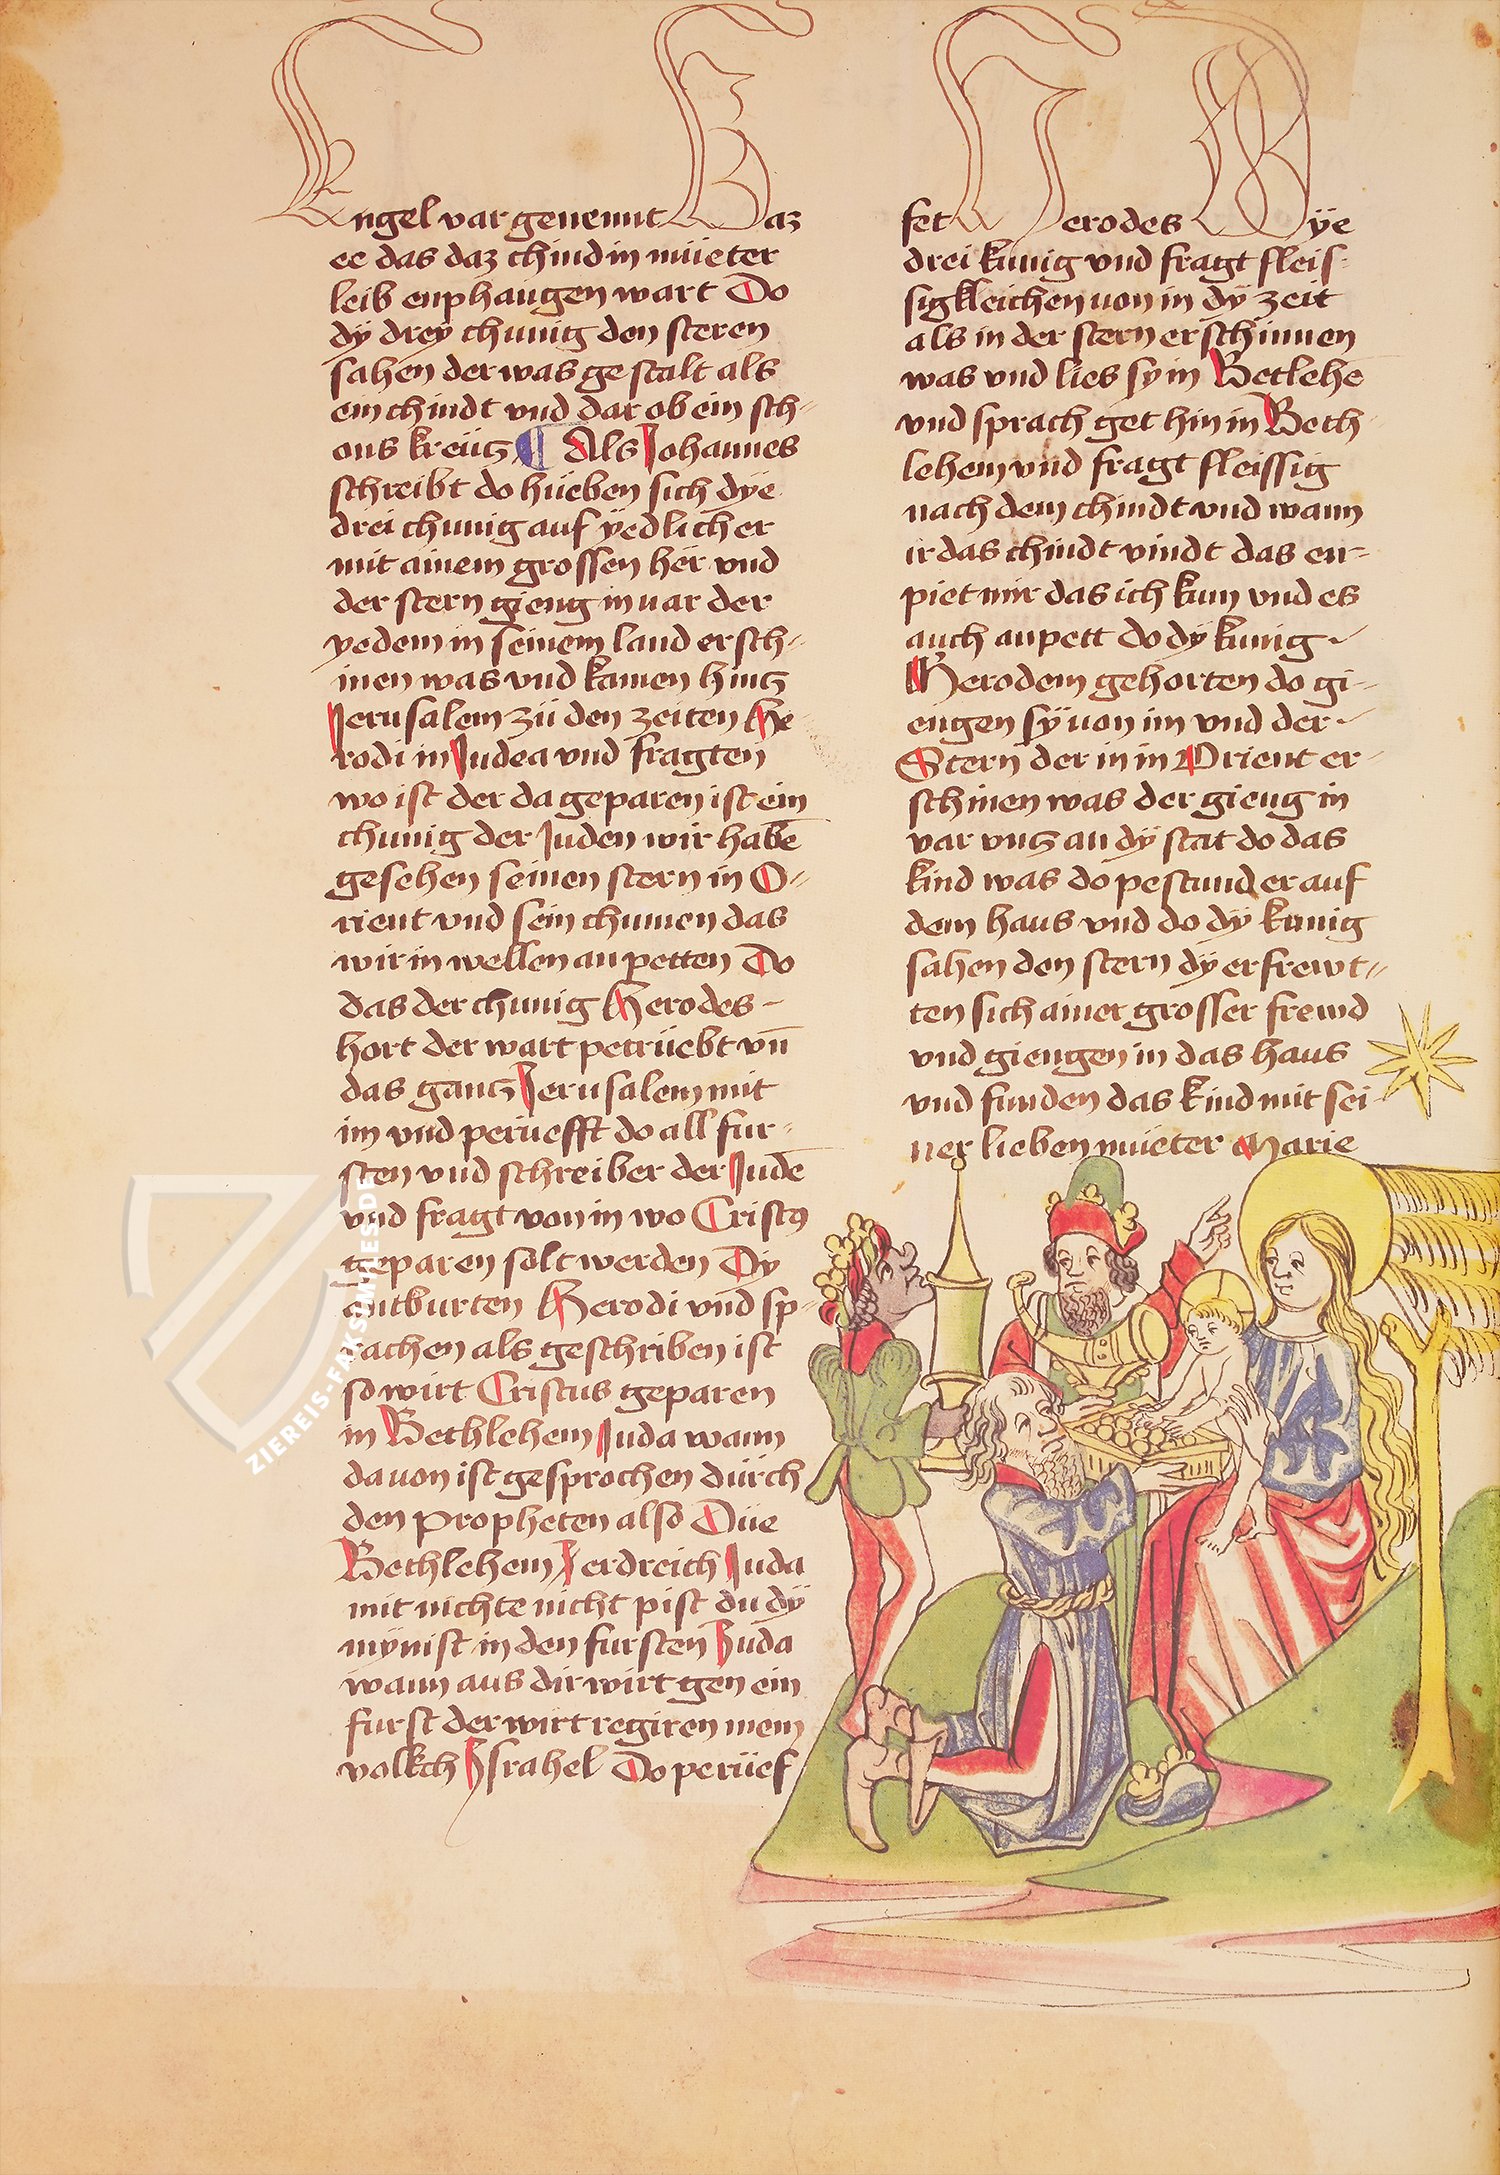 Engel var genennt E Daz
ee das daz chind in müeter
leib enphangen wart Do
dÿ dreÿ chunig den steren
sahen der was gestalt als
ein chindt vnd dar ob ein sch=
ons kreütz ¶ Als Johannes
schreibt do hüeben sich dÿe
drei chunig auf ÿedlicher
mit ainem grossen her vnd
der stern gieng in uar der
yedem in seinem land ersch=
inen was vnd kamen hintz
Jerusalem zü den zeiten He
rodi in Judea vnd fragten
wo ist der da geparen ist ein
chunig der Juden wir habē
gesehen seinen stern in O=
rient vnd sein chumen das
wir in wellen an petten Do
das der chunig Herodes -
hort der wart petrüebt vn̄
das gantz Jerusalem mit
im vnd perüefft do all fur-
sten vnd schreiber der Judē
vnd fragt von in wo Cristꝯ
geparen solt werden Dy
antburten Herodi vnd sp-
rachen als geschriben ist
so wirt Cristus geparen
in Bethlehem Juda wann
da uon ist gesprochen dürch
den propheten also Düe
Bethlehem Jerdreich Juda
mit nichte nicht pist du dÿ
mynist in den fursten Juda
wann aus dir wirt gen ein
furst der wirt regiren mein
volkch Israhel Do perüef
fet Herodes Dÿe
drei kunig vnd fragt fleis-
sigkleichen uon in dÿ zeit
als in der stern erschinnen
was vnd lies sy in Betlehē
vnd sprach get hin in Beth-
lehem vnd fragt fleissig
nach dem chindt vnd wann
ir das chindt vindt das en-
piet mir das ich kum vnd es
auch an pett do dÿ kunig -
Herodem gehorten do gi-
engen sÿ uon im vnd der -
Stern der in in Orient er-
schinen was der gieng in
var vntz an dÿ stat do das
kind was do pestund er auf
dem haus vnd do dÿ kunig
sahen den stern dÿ erfrewt=
ten sich ainer grosser frewd
vnd giengen in das haus
vnd funden das kind mit sei-
ner lieben müeter Marie
ZIEREIS-FAKSIMILES.DE